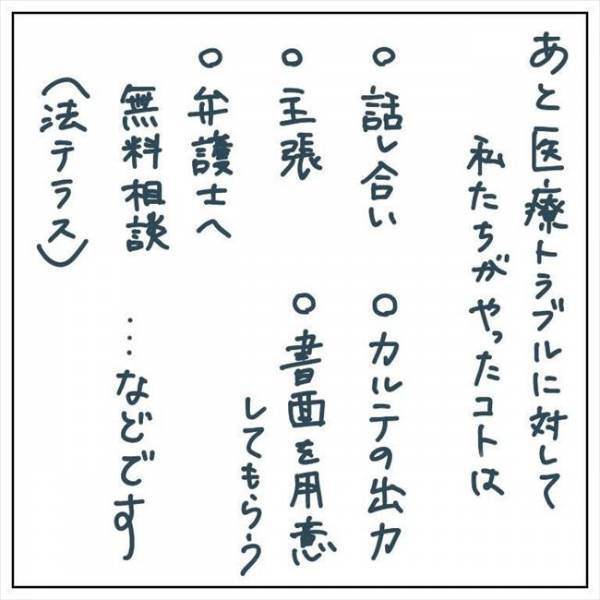 あと医療トラブルに対して
私たちがやったコトは
○話し合い
○カルテの出力
○主張
○書面を用意
してもらう
○弁護士へ
無料相談
(法テラス)
…などです